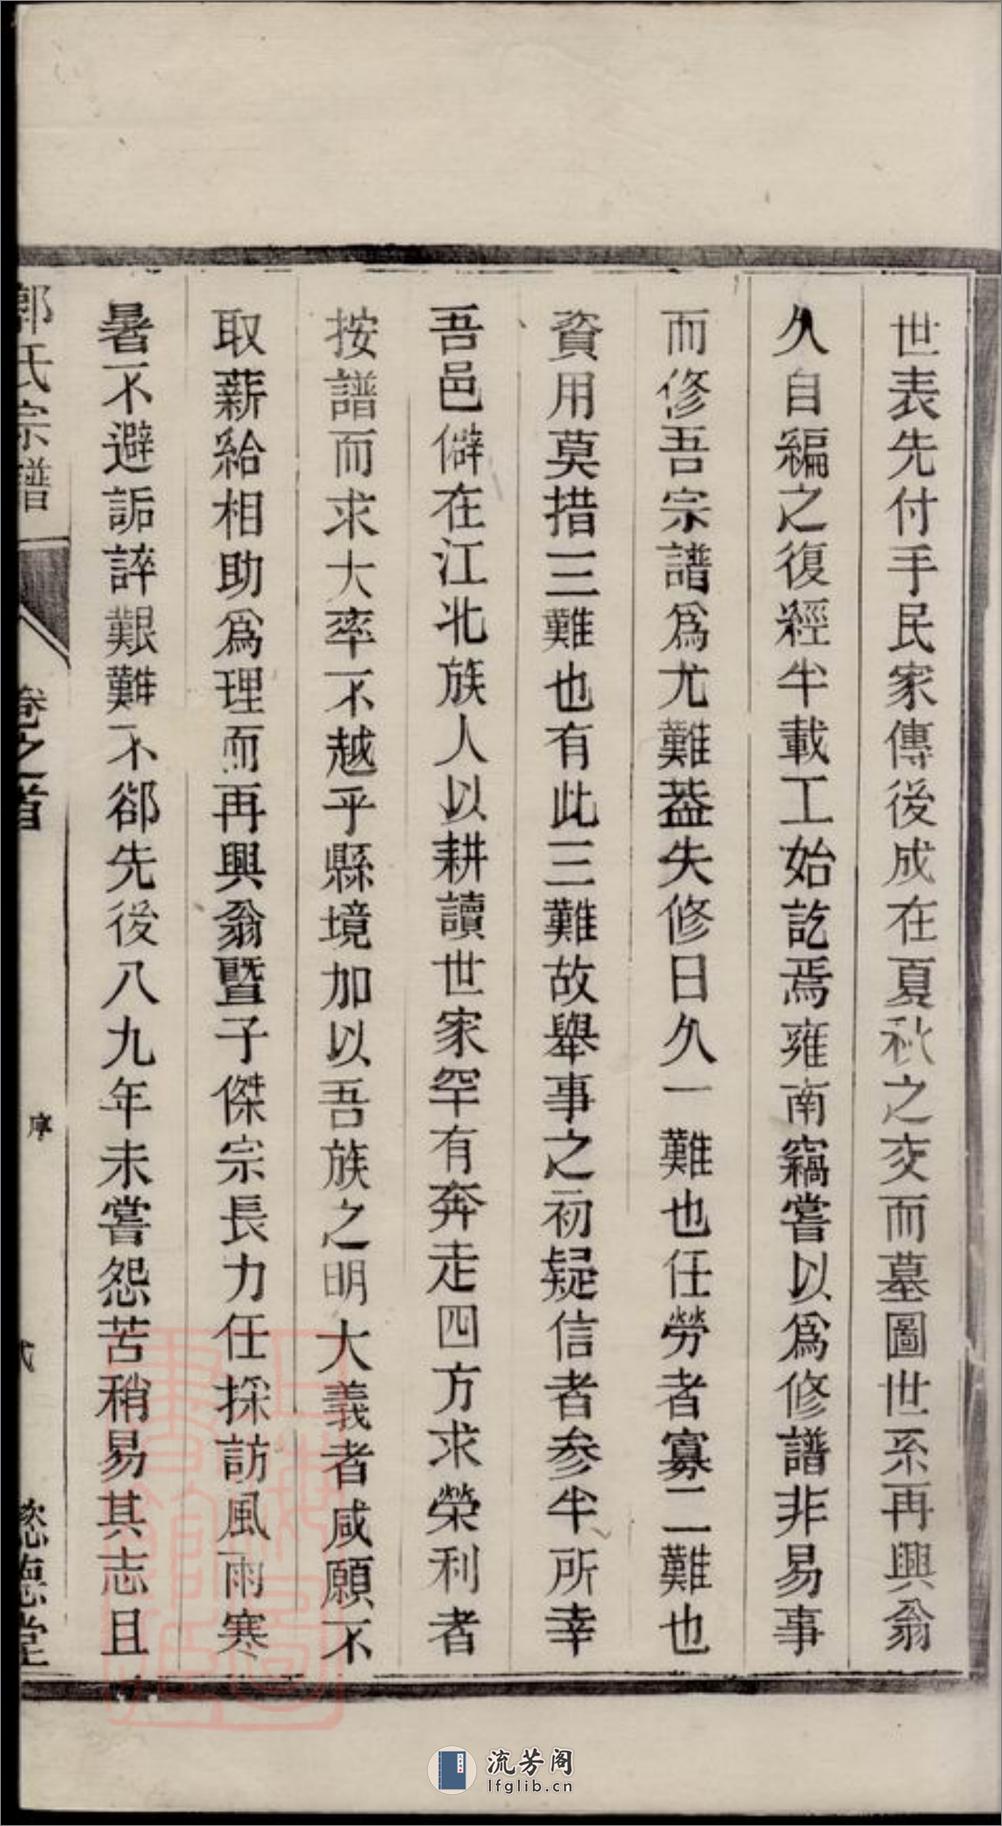 世表先付手民家傳後成在夏秋之交而墓圖世系再興翁
久自編之復經半載工始訖焉雍南竊嘗以爲修譜非易事
而修吾宗譜爲尤難葢失修日久一難也任勞者寡二難也
資用莫措三難也有此三難故舉事之初疑信者參半所幸
吾邑僻在江北族人以耕讀世家罕有奔走四方求榮利者
按譜而求大率不越乎縣境加以吾族之明大義者咸願不
取薪給相助爲理而再興翁暨子傑宗長力任採訪風雨寒
暑不避詬誶艱難不卻先後八九年未嘗怨苦稍易其志且
郭氏宗譜
卷之首
序
懿德堂
流芳阁
lfglib.cn